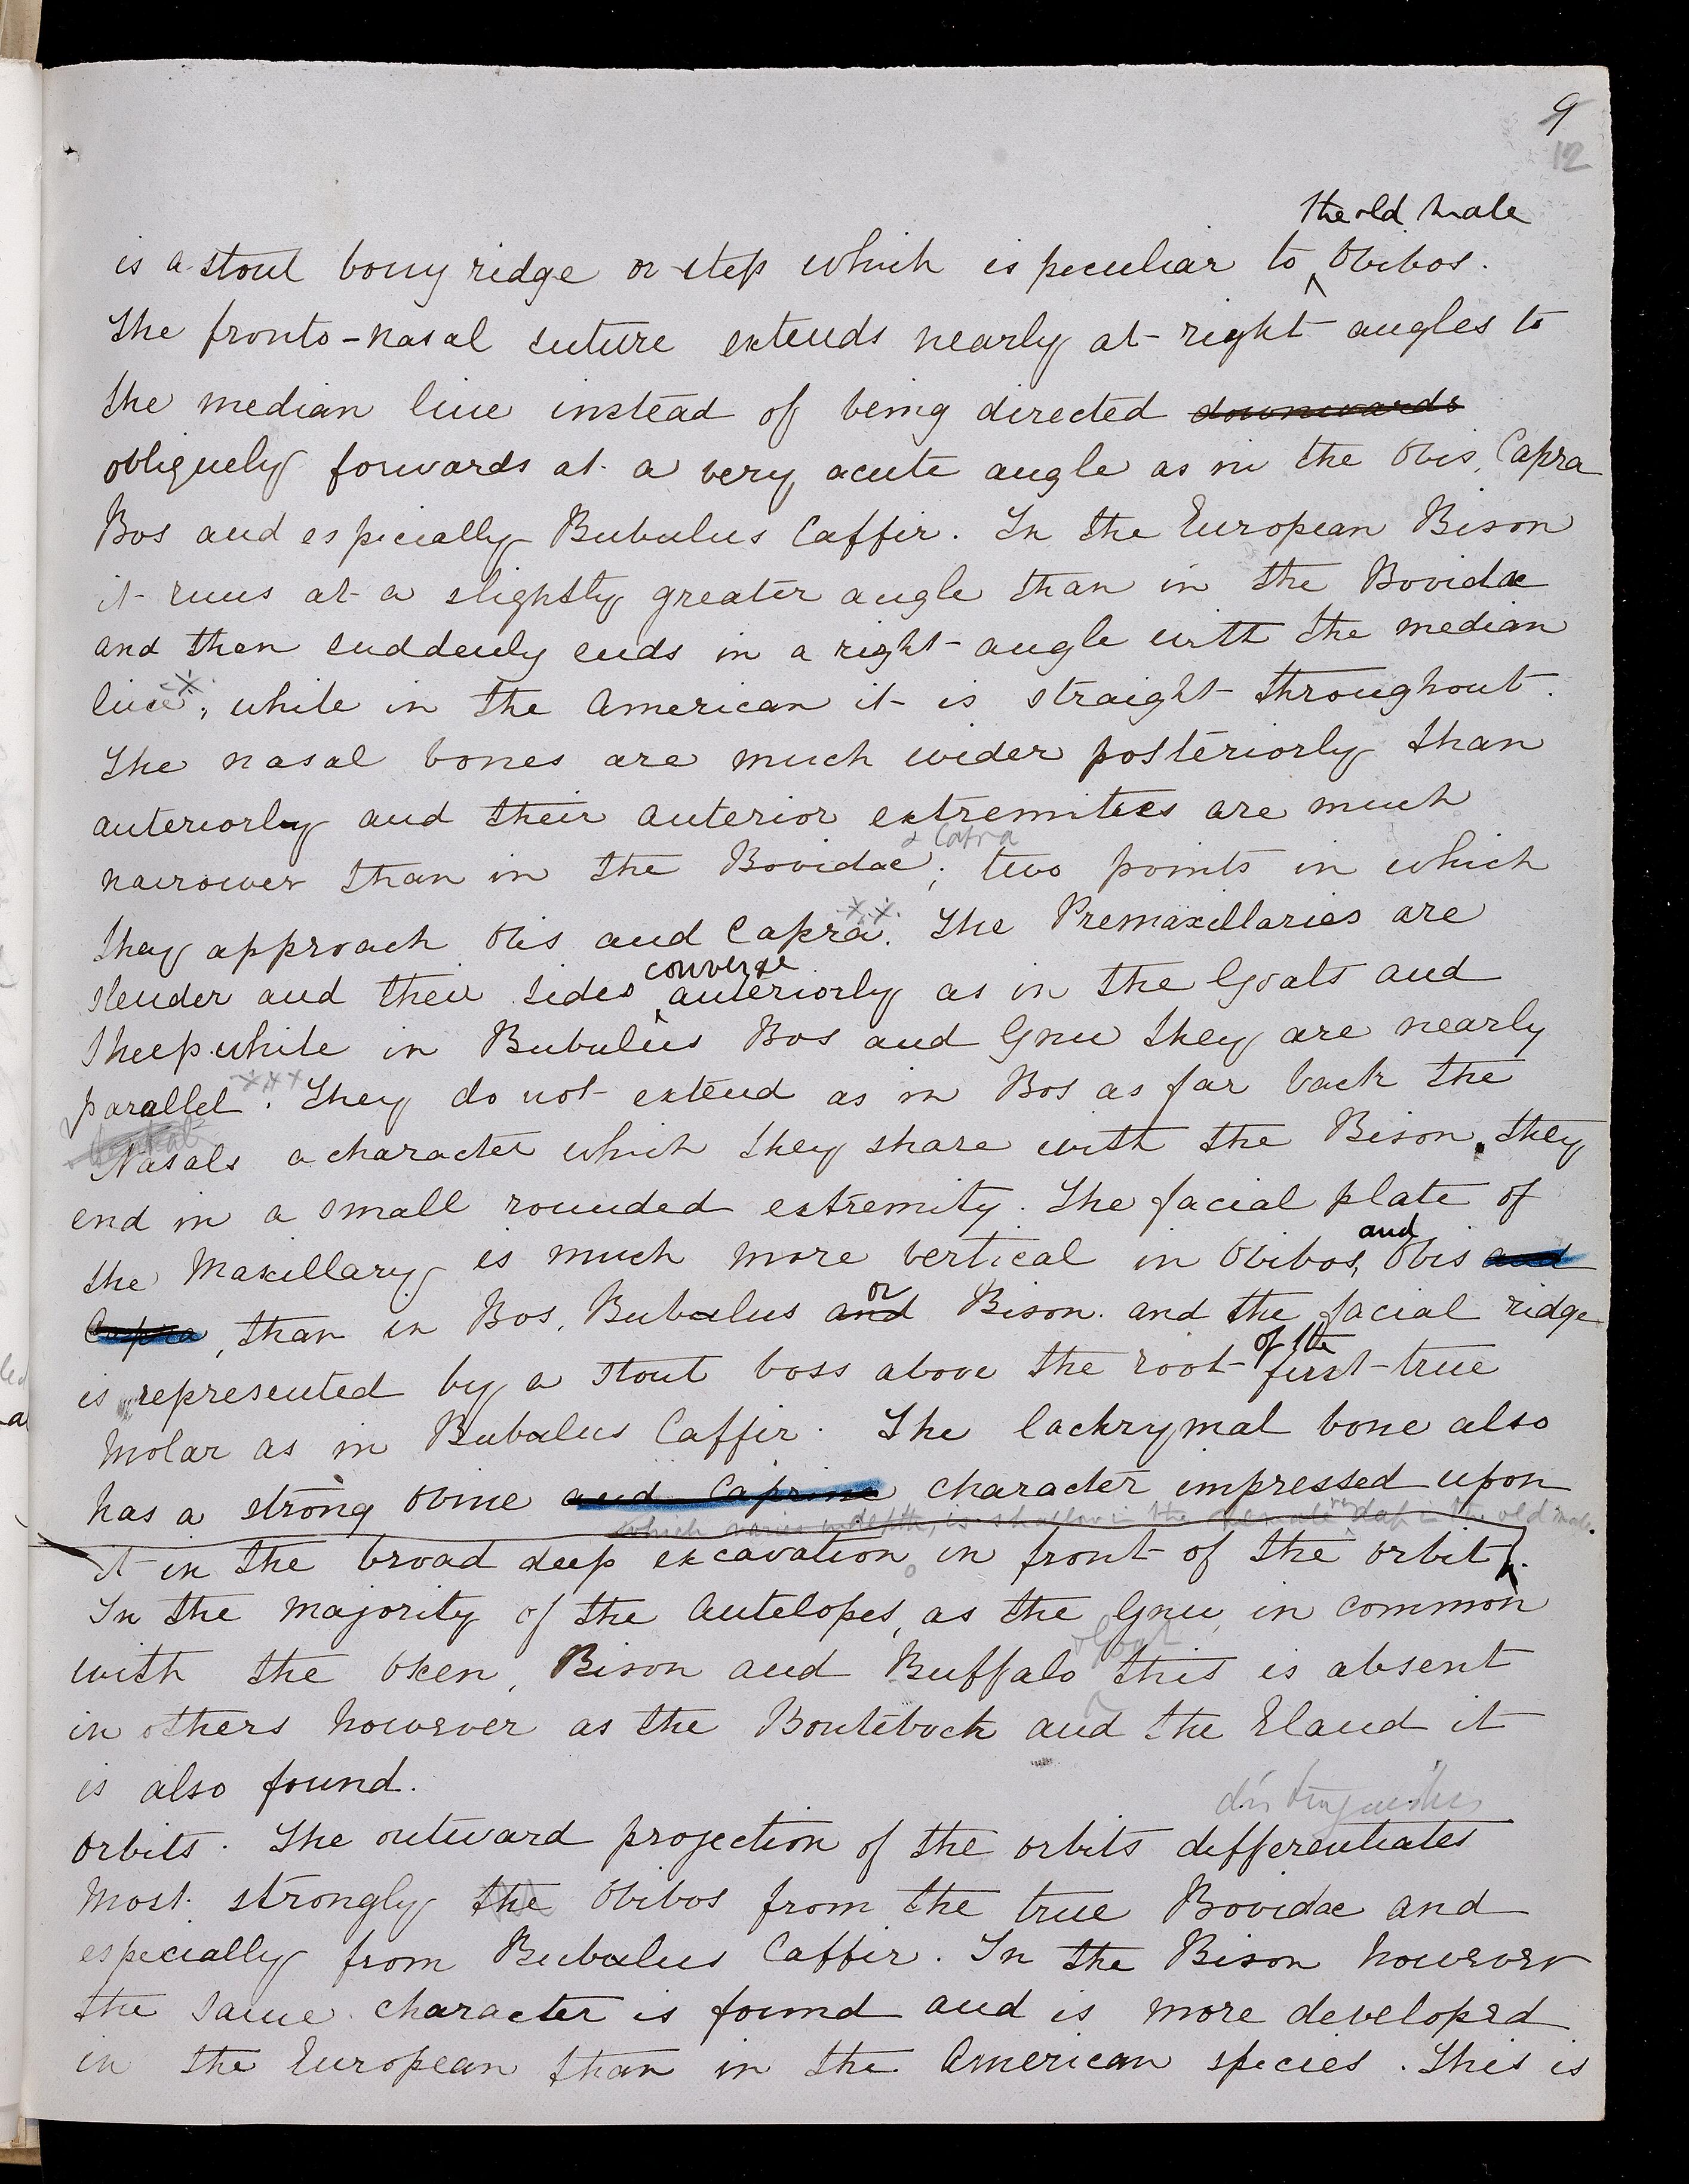 9
12
the old male
is a stout bony ridge or step which is peculiar to Ovibos.
The fronto-nasal suture extends nearly at right angles to
the median line instead of being directed downwards
obliquely forwards at a very acute angle as in the Ovis, Capra
Bos and especially Bubulus Caffir. In the European Bison
it runs at a slightly greater angle than in the Bovidae
and then suddenly ends in a right-angle with the median
line x; while in the American it is straight throughout.
The nasal bones are much wider posteriorly than
anteriorly and their anterior extremities are much
& Capra
narrower than in the Bovidae; two points in which
they approach Ovis and Capra x.x. The Premaxillaries are
converge
slender and their sides anteriorly as in the Goats and
Sheep while in Bubulus Bos and Gnu they are nearly
parallel xxx. They do not extend as in Bos as far back the
Nasals a character which they share with the Bison. they
end in a small rounded extremity. The facial plate of
and
the Maxillary is much more vertical in Ovibos, Ovis and
or
Capra, than in Bos, Bubalus and Bison. and the facial ridge
of the
is represented by a stout boss above the root first-true
Molar as in Bubalus Caffir. The lachrymal bone also
has a strong Ovine and Caprine character impressed upon
which varies in depth, is shallow in the female deep in the old male.
it in the broad deep excavation in front of the orbit.
In the majority of the Antelopes, as the Gnu, in common
& Goat
with the Oxen, Bison and Buffalo this is absent
in others however as the Bontebock and the Eland it
is also found.
distinguishes
Orbits. The outward projection of the orbits differentiates
most strongly the Ovibos from the true Bovidae and
especially from Bubalus Caffir. In the Bison however
the same character is found and is more developed
in the European than in the American species. This is